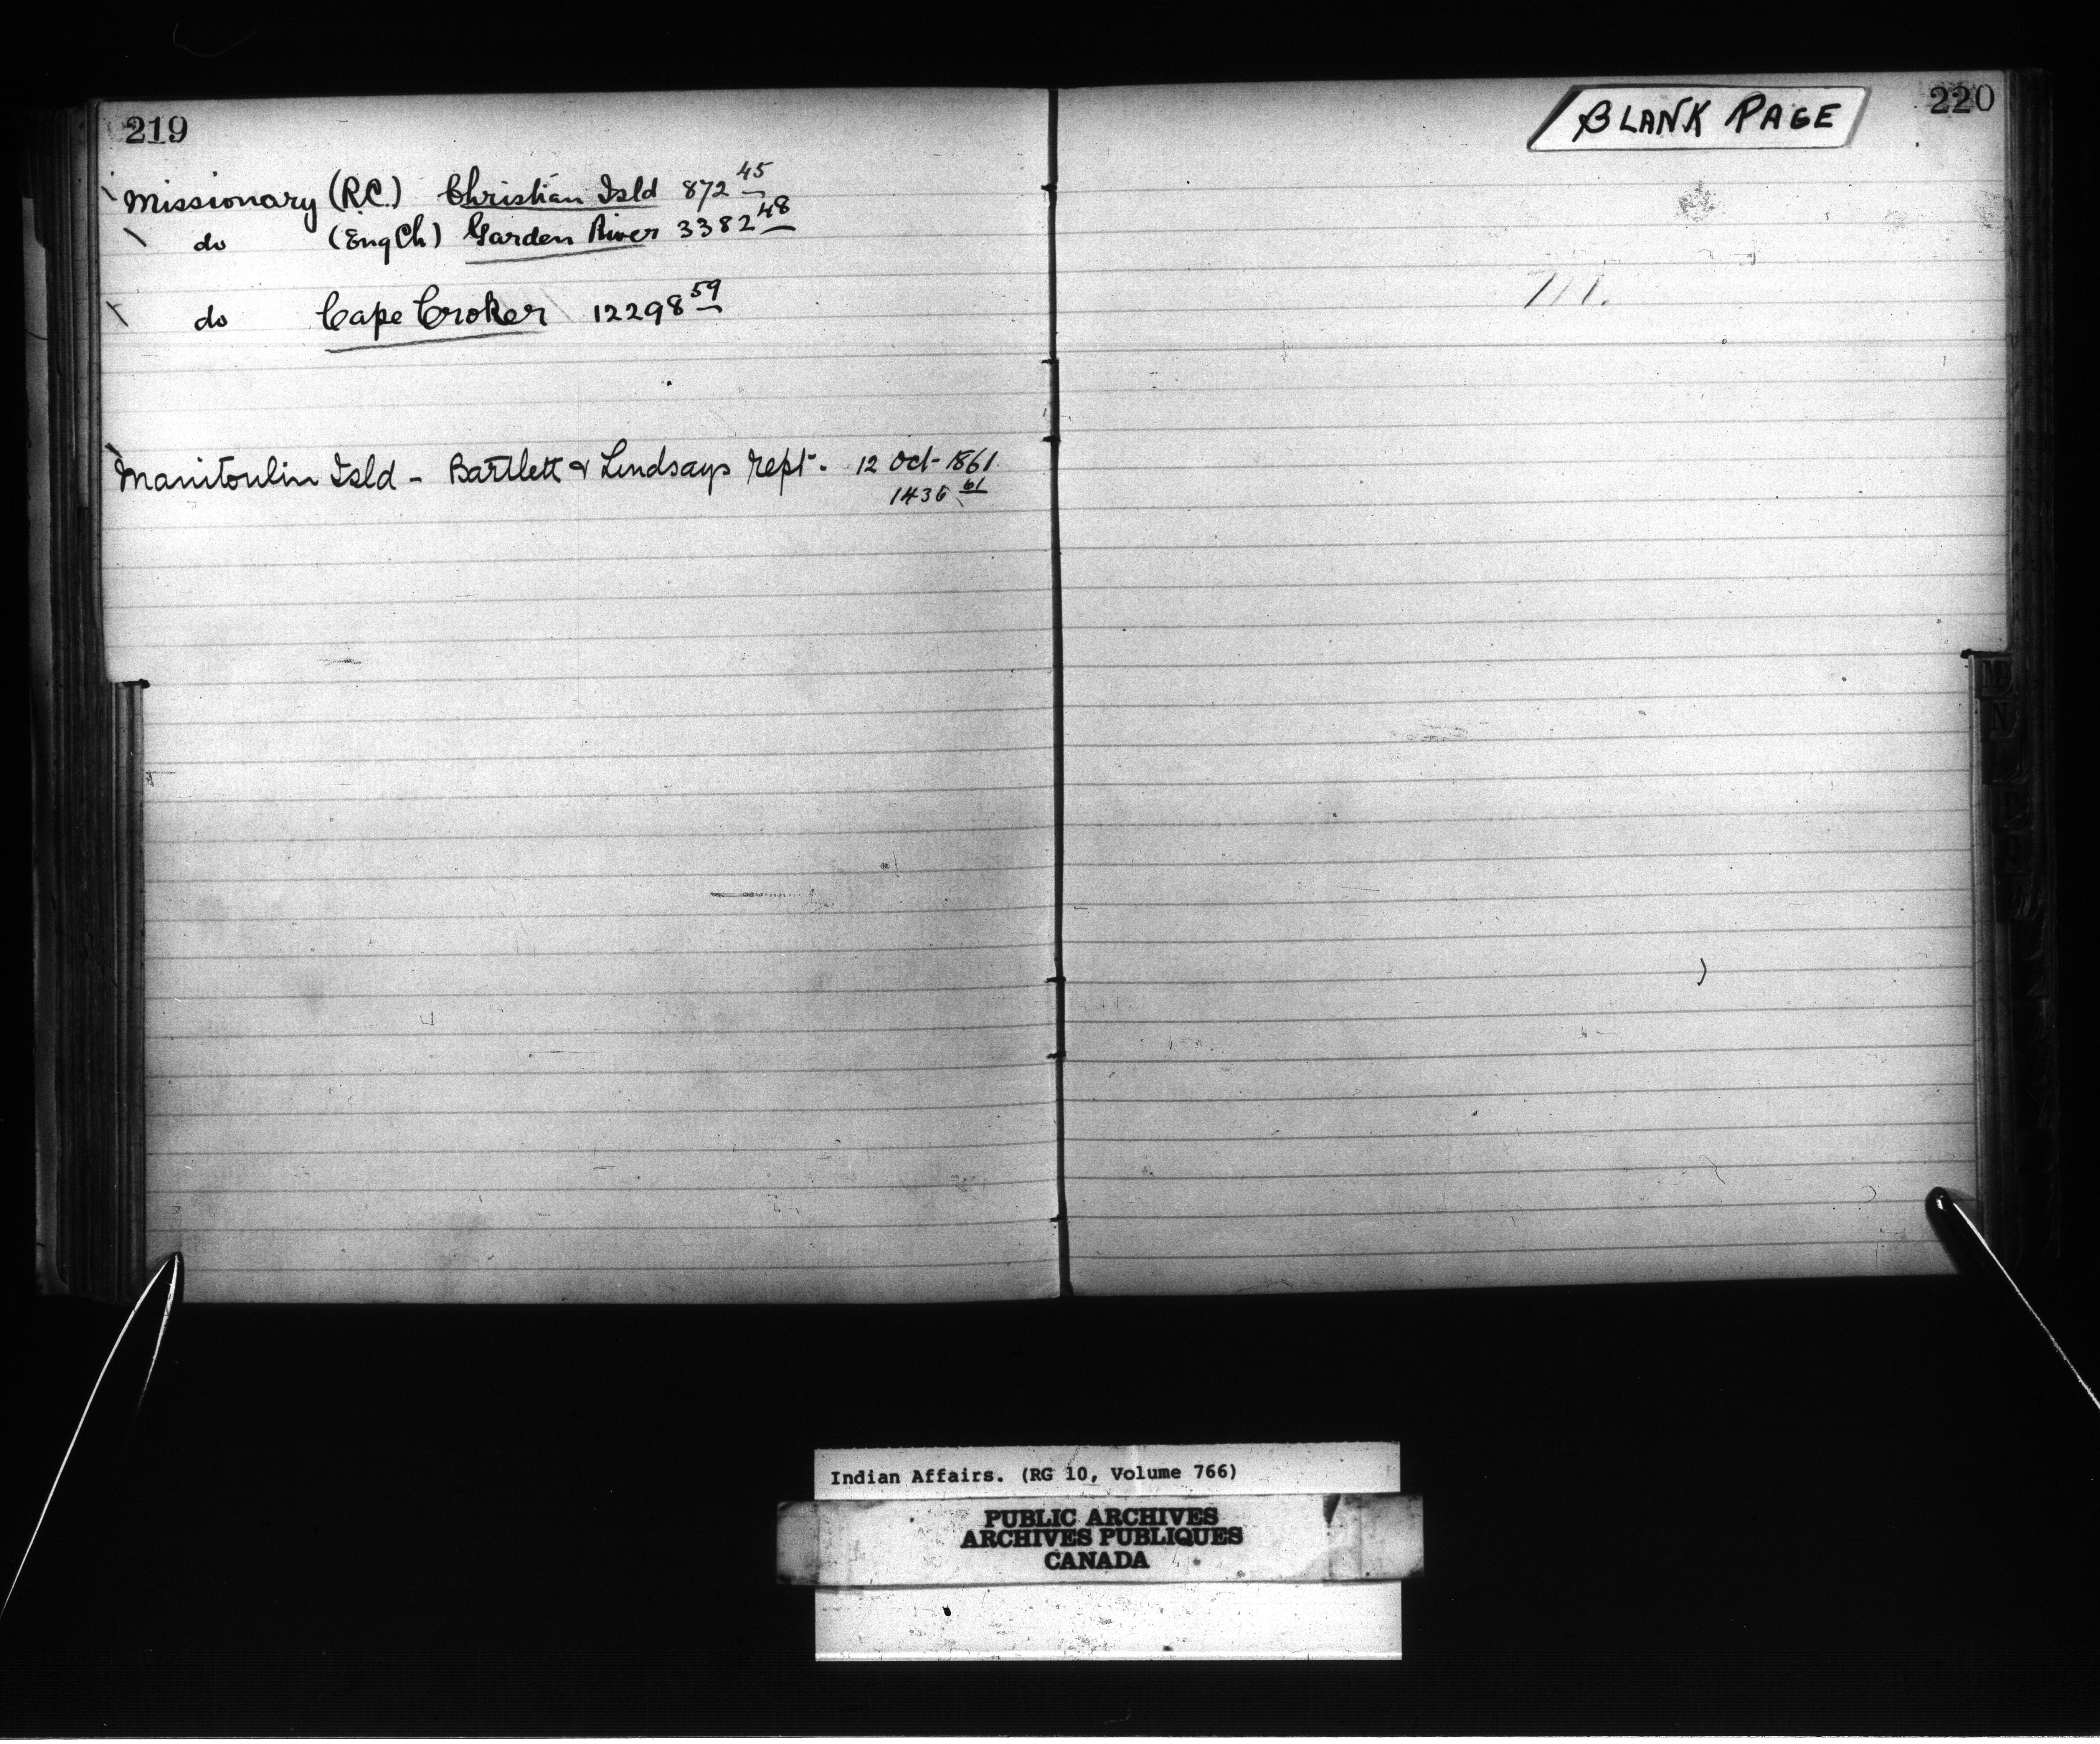 219
Missionary (R.C.) Christian Isld 872 45
do (Eng Ch) Garden River 3382 48
do Cape Croker 12298 59
Manitoulin Isld - Bartlett & Lindsays rept. 12 Oct - 1861
1436 61
BLANK PAGE
220
M
N
P
Indian Affairs. (RG 10, Volume 766)
PUBLIC ARCHIVES
ARCHIVES PUBLIQUES
CANADA